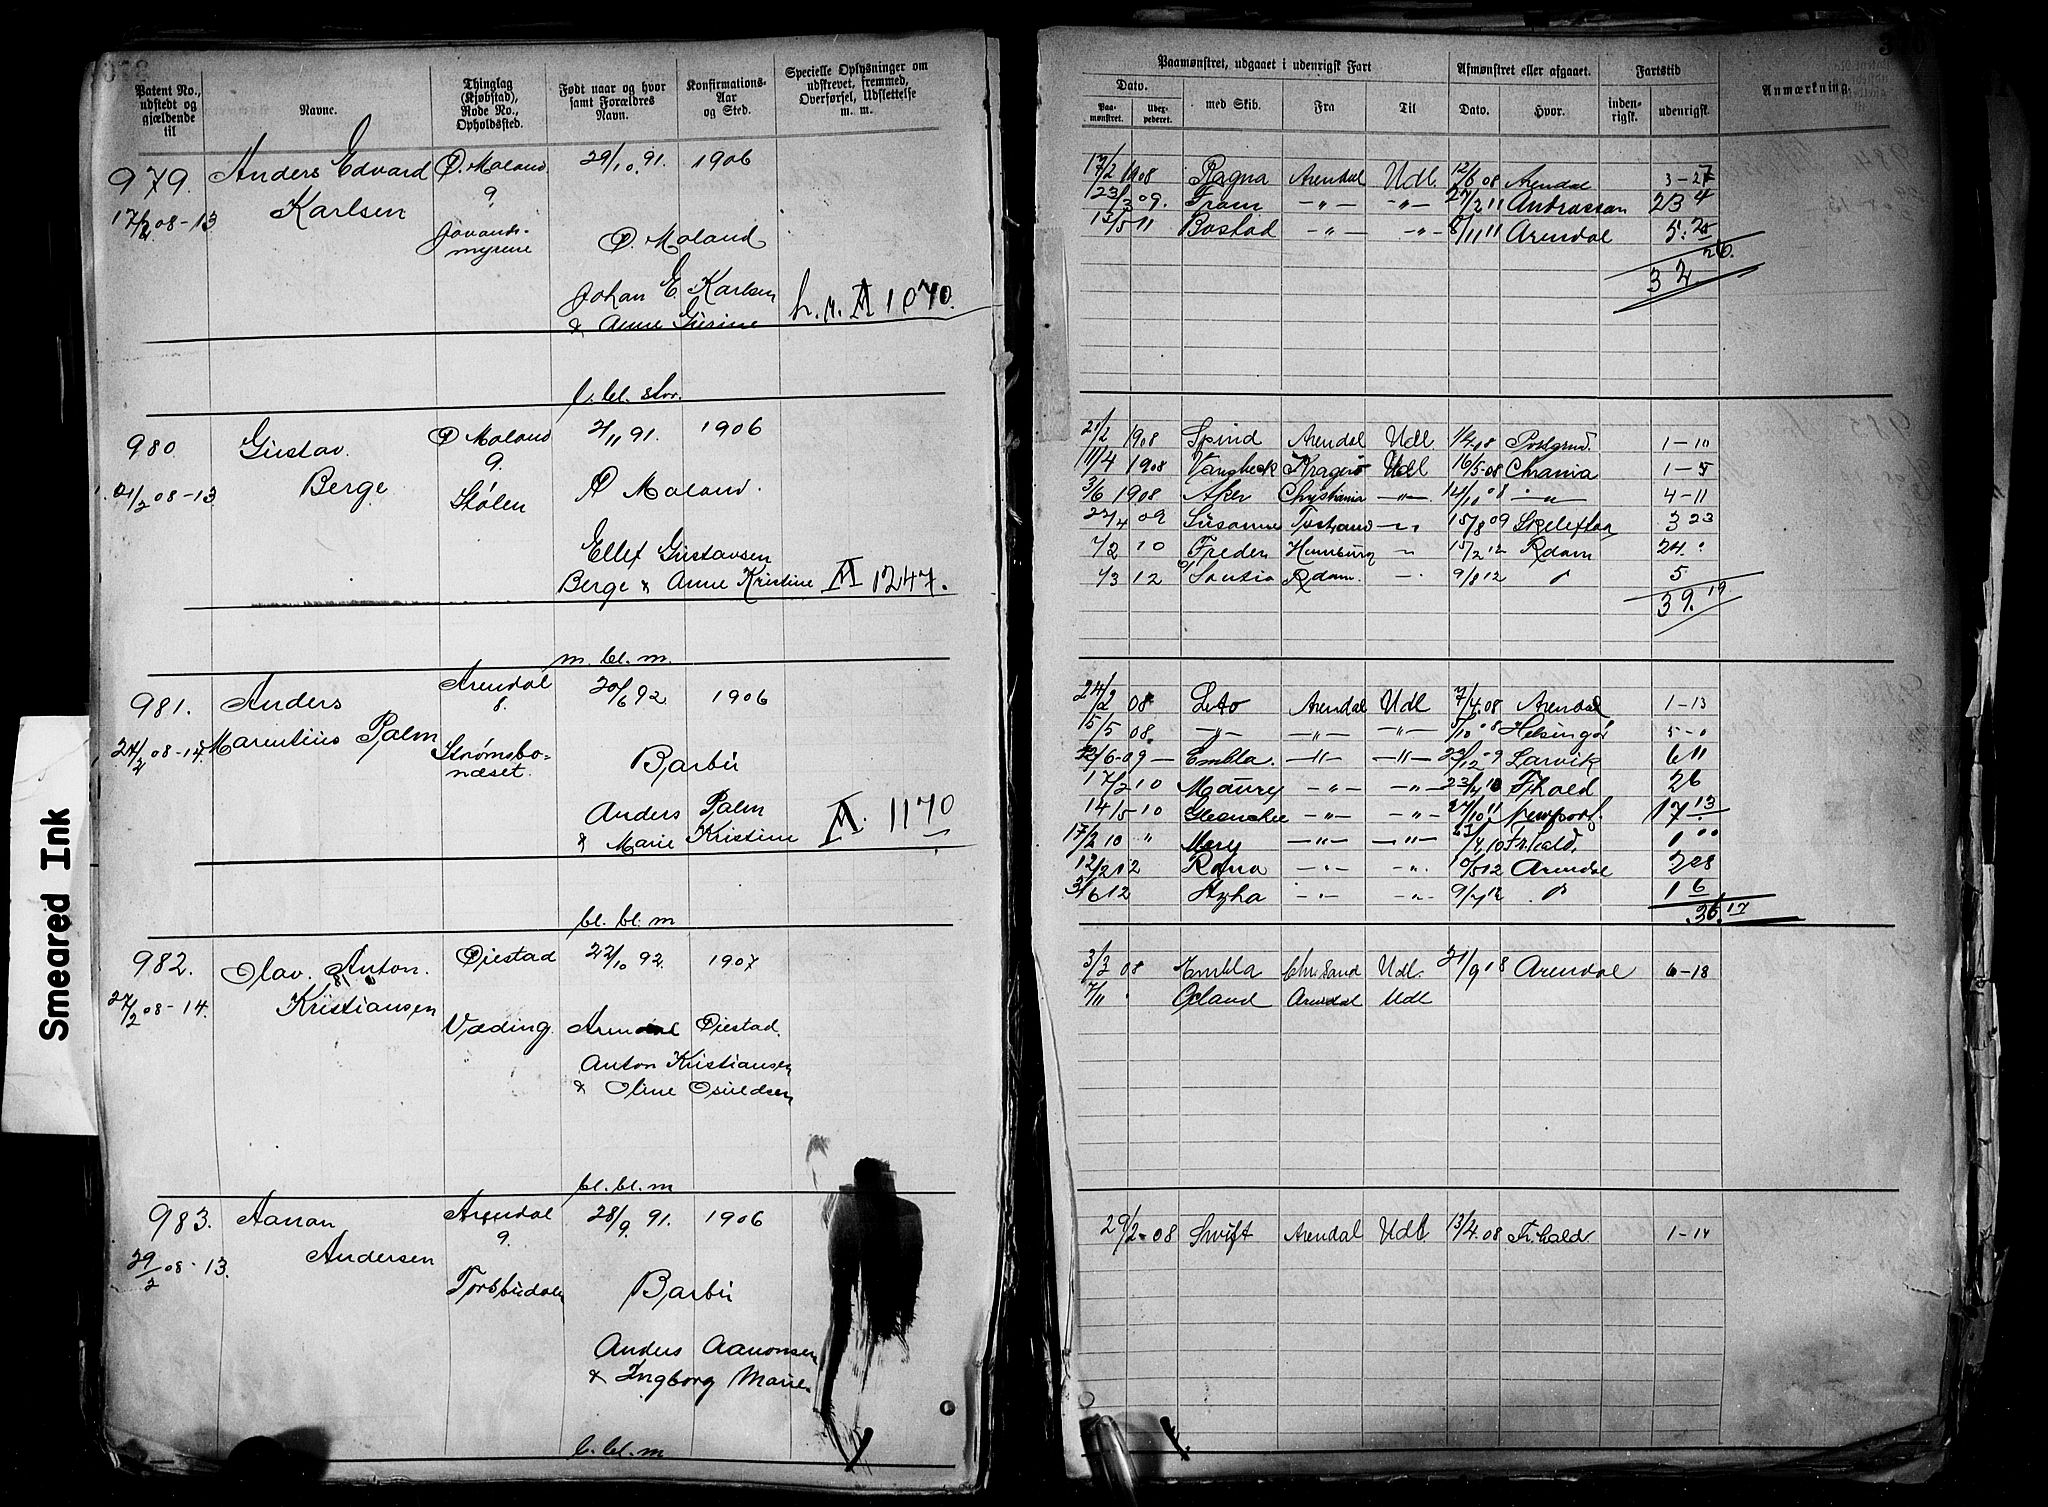 Patent No., udstedt og gjældende til
Navne.
Thinglag (Kjøbstad), Rode No., Opholdssted.
Født naar og hvor samt Forældres Navn.
Konfirmations-Aar og Sted.
Specielle Oplysninger om udskrevet, fremmed, Overførsel, Udslettelse m. m.
979.
Anders Edvard
Ø. Moland
29/10 91.
1906
17/2 08-13
Karlsen
9
myrene
Ø. Moland
Johan E. Karlsen
& Anne Gurine
A 1070.
l. bl. stor.
980
Gustav
Ø Moland
2/11 91.
1906
21/2 08-13.
Berge
9.
Stølen
Ø Moland.
Ellef Gustavsen
Berge & Anne Kristine
A 1247.
m. bl. m.
981.
Anders
Arendal
20/6 92
1906
24/2 08-14.
Marentius Palm
8.
Strømsbo-
næset.
Barbu
Anders Palm
& Marie Kristine
A. 1170
bl. bl. m
982.
Olav Anton.
Øiestad
22/10 92.
1907
27/2 08-14.
Kristiansen
Væding.
Arendal Øiestad.
Anton Kristiansen
& Oline Osuldsen
bl. bl. m
983.
Aanon
Arendal
28/9. 91.
1906
29/2 08-13.
Andersen
9.
Torsbudalen
Barbu
Anders Aanonsen
& Ingborg Marie.
b. bl. m
Smeared Ink
Paamønstret, udgaaet i udenrigsk Fart
Afmønstret eller afgaaet.
Fartstid
Anmærkning.
Dato.
Paa-mønstret.
Uber-pederet.
med Skib.
Fra
Til
Dato.
Hvor.
inden-rigsk.
udenrigsk.
17/2 1908 Ragna Arendal Udl. 12/6 08 Arendal 3-27
23/3 09. Fram -„- -„- 27/2 11 23 4
13/5 11 Bostad -„- -„- 8/11 11 Arendal 5. 25
32 26.
21/2 1908 Spind Arendal Udl 1/4 08 1-10
11/4 1908 Kragerø Udl 16/5-08 Chrania 1-5
3/6 1908 Aker Christiania -„- 14/10 08 -„- 4-11
27/4 09 Susanne 15/8 09 3 23
1/2 10 Freden Hamburg 15/2 12 Rdam 24.
1/3 12 Rdam. 9/8 12 5
39. 19
24/2 08 Leto Arendal Udl 7/4.08 Arendal 1-13
15/5 08. -„- -„- -„- 5/10 08 Helsingør 5-0
22/6-09 Embla. -„- -„- Larvik 6 11
17/2 10 -„- -„- Fhald 26
14/5-10 -„- -„- 27/10 11 Newport. 17 13
17/2 10 „ Mary -„- -„- Frhald.
12/2 12 Rana -„- -„- 10/5 12 Arendal 2 28
3/6 12 -„- -„- 9/7 12 1 6
36. 17
3/3 08 Embla Chrsand Udl. 21/9 08 Arendal 6-18
7/11 Øeland Arendal Udl
29/2-08 Swift Arendal Udl 13/4.08 Fr.hald. 1-14